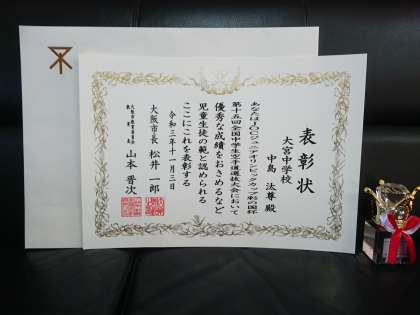 表彰状
大宮中学校
中島 汰尊 殿
あなたはJOCジュニアオリンピックカップ彩の国杯
第十五回全国中学生空手道選抜大会において
優秀な成績をおさめるなど
児童生徒の範と認められる
ここにこれを表彰する
令和三年十一月三日
大阪市長 松井 一郎
大阪市教育委員会
教育長
山本 晋次